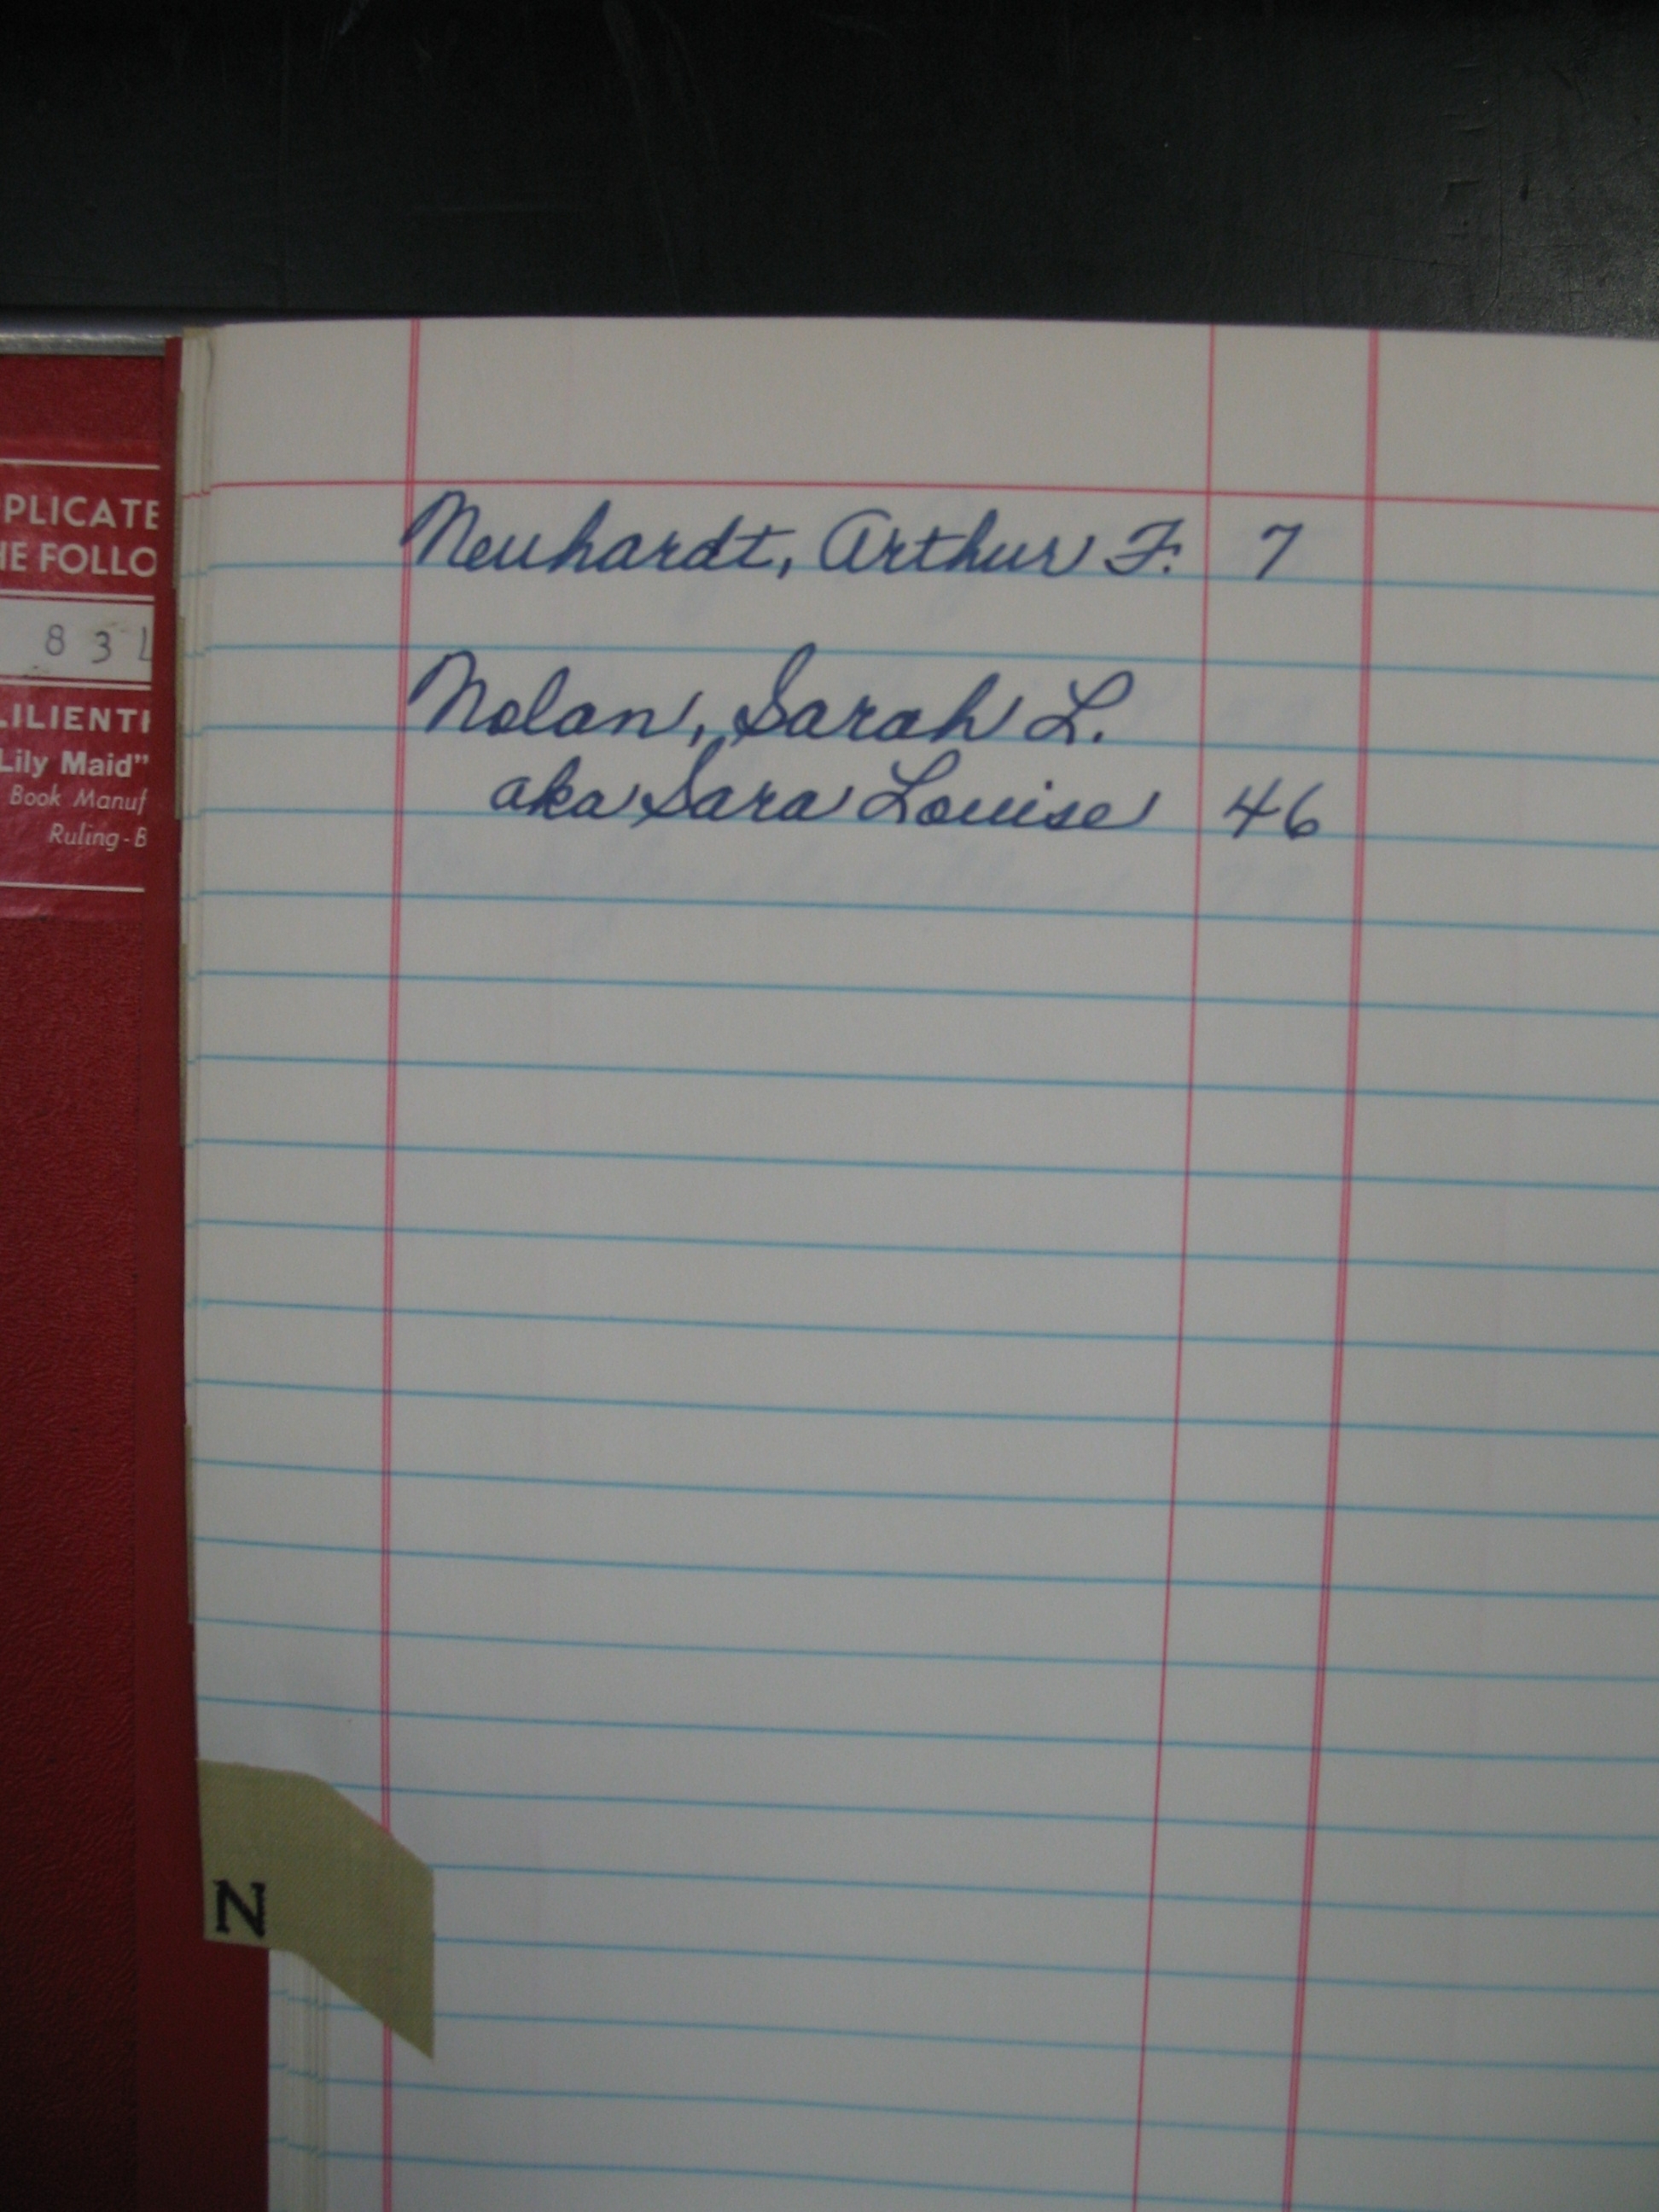 PLICATE
HE FOLLO
8 3
LILIENT
Lily Maid"
Book Manuf
Ruling - B
Neuhardt, Arthur F. 7
Nolan, Sarah L.
aka Sara Louise 46
N